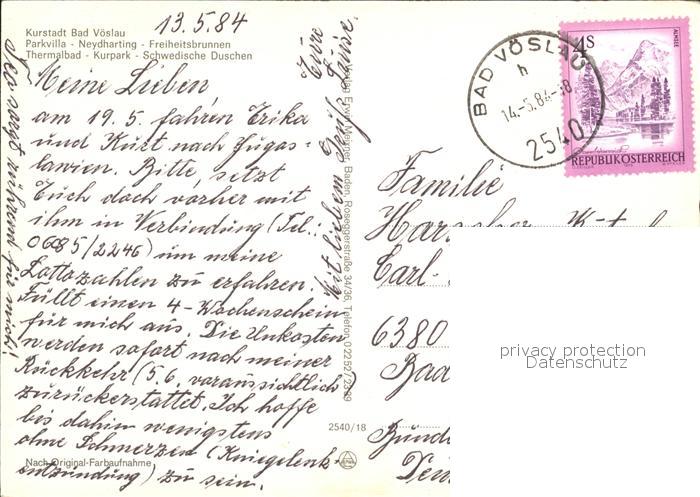 13.5.84
Kurstadt Bad Vöslau
Parkvilla - Neydharting - Freiheitsbrunnen
Thermalbad - Kurpark - Schwedische Duschen
Meine Lieben
am 19.5. fahren Erika
und Kurt nach Jugos-
lawien. Bitte, setzt
Euch doch vorher mit
ihm in Verbindung (Tel.:
06685/2246) um meine
Lottozahlen zu erfahren.
Füllt einen 4-Wochenschein
für mich aus. Die Unkosten
werden sofort nach meiner
Rückkehr (5.6. voraussichtlich)
zurückerstattet. Ich hoffe
bis dahin wenigstens
ohne Schmerzen (Kniegelenk-
entzündung) zu sein.
Mit liebem Gruß
Eure Luise.
sorgt rührend für mich!
Nach Original-Farbaufnahme
2540/18
Baden, Roseggerstraße 34/36, Telefon 02252/
BAD VÖSLAU
h
14.-5.84-18
2540
4S
ALMSEE
REPUBLIK ÖSTERREICH
Familie
Carl-
6380
Bad
privacy protection
Datenschutz